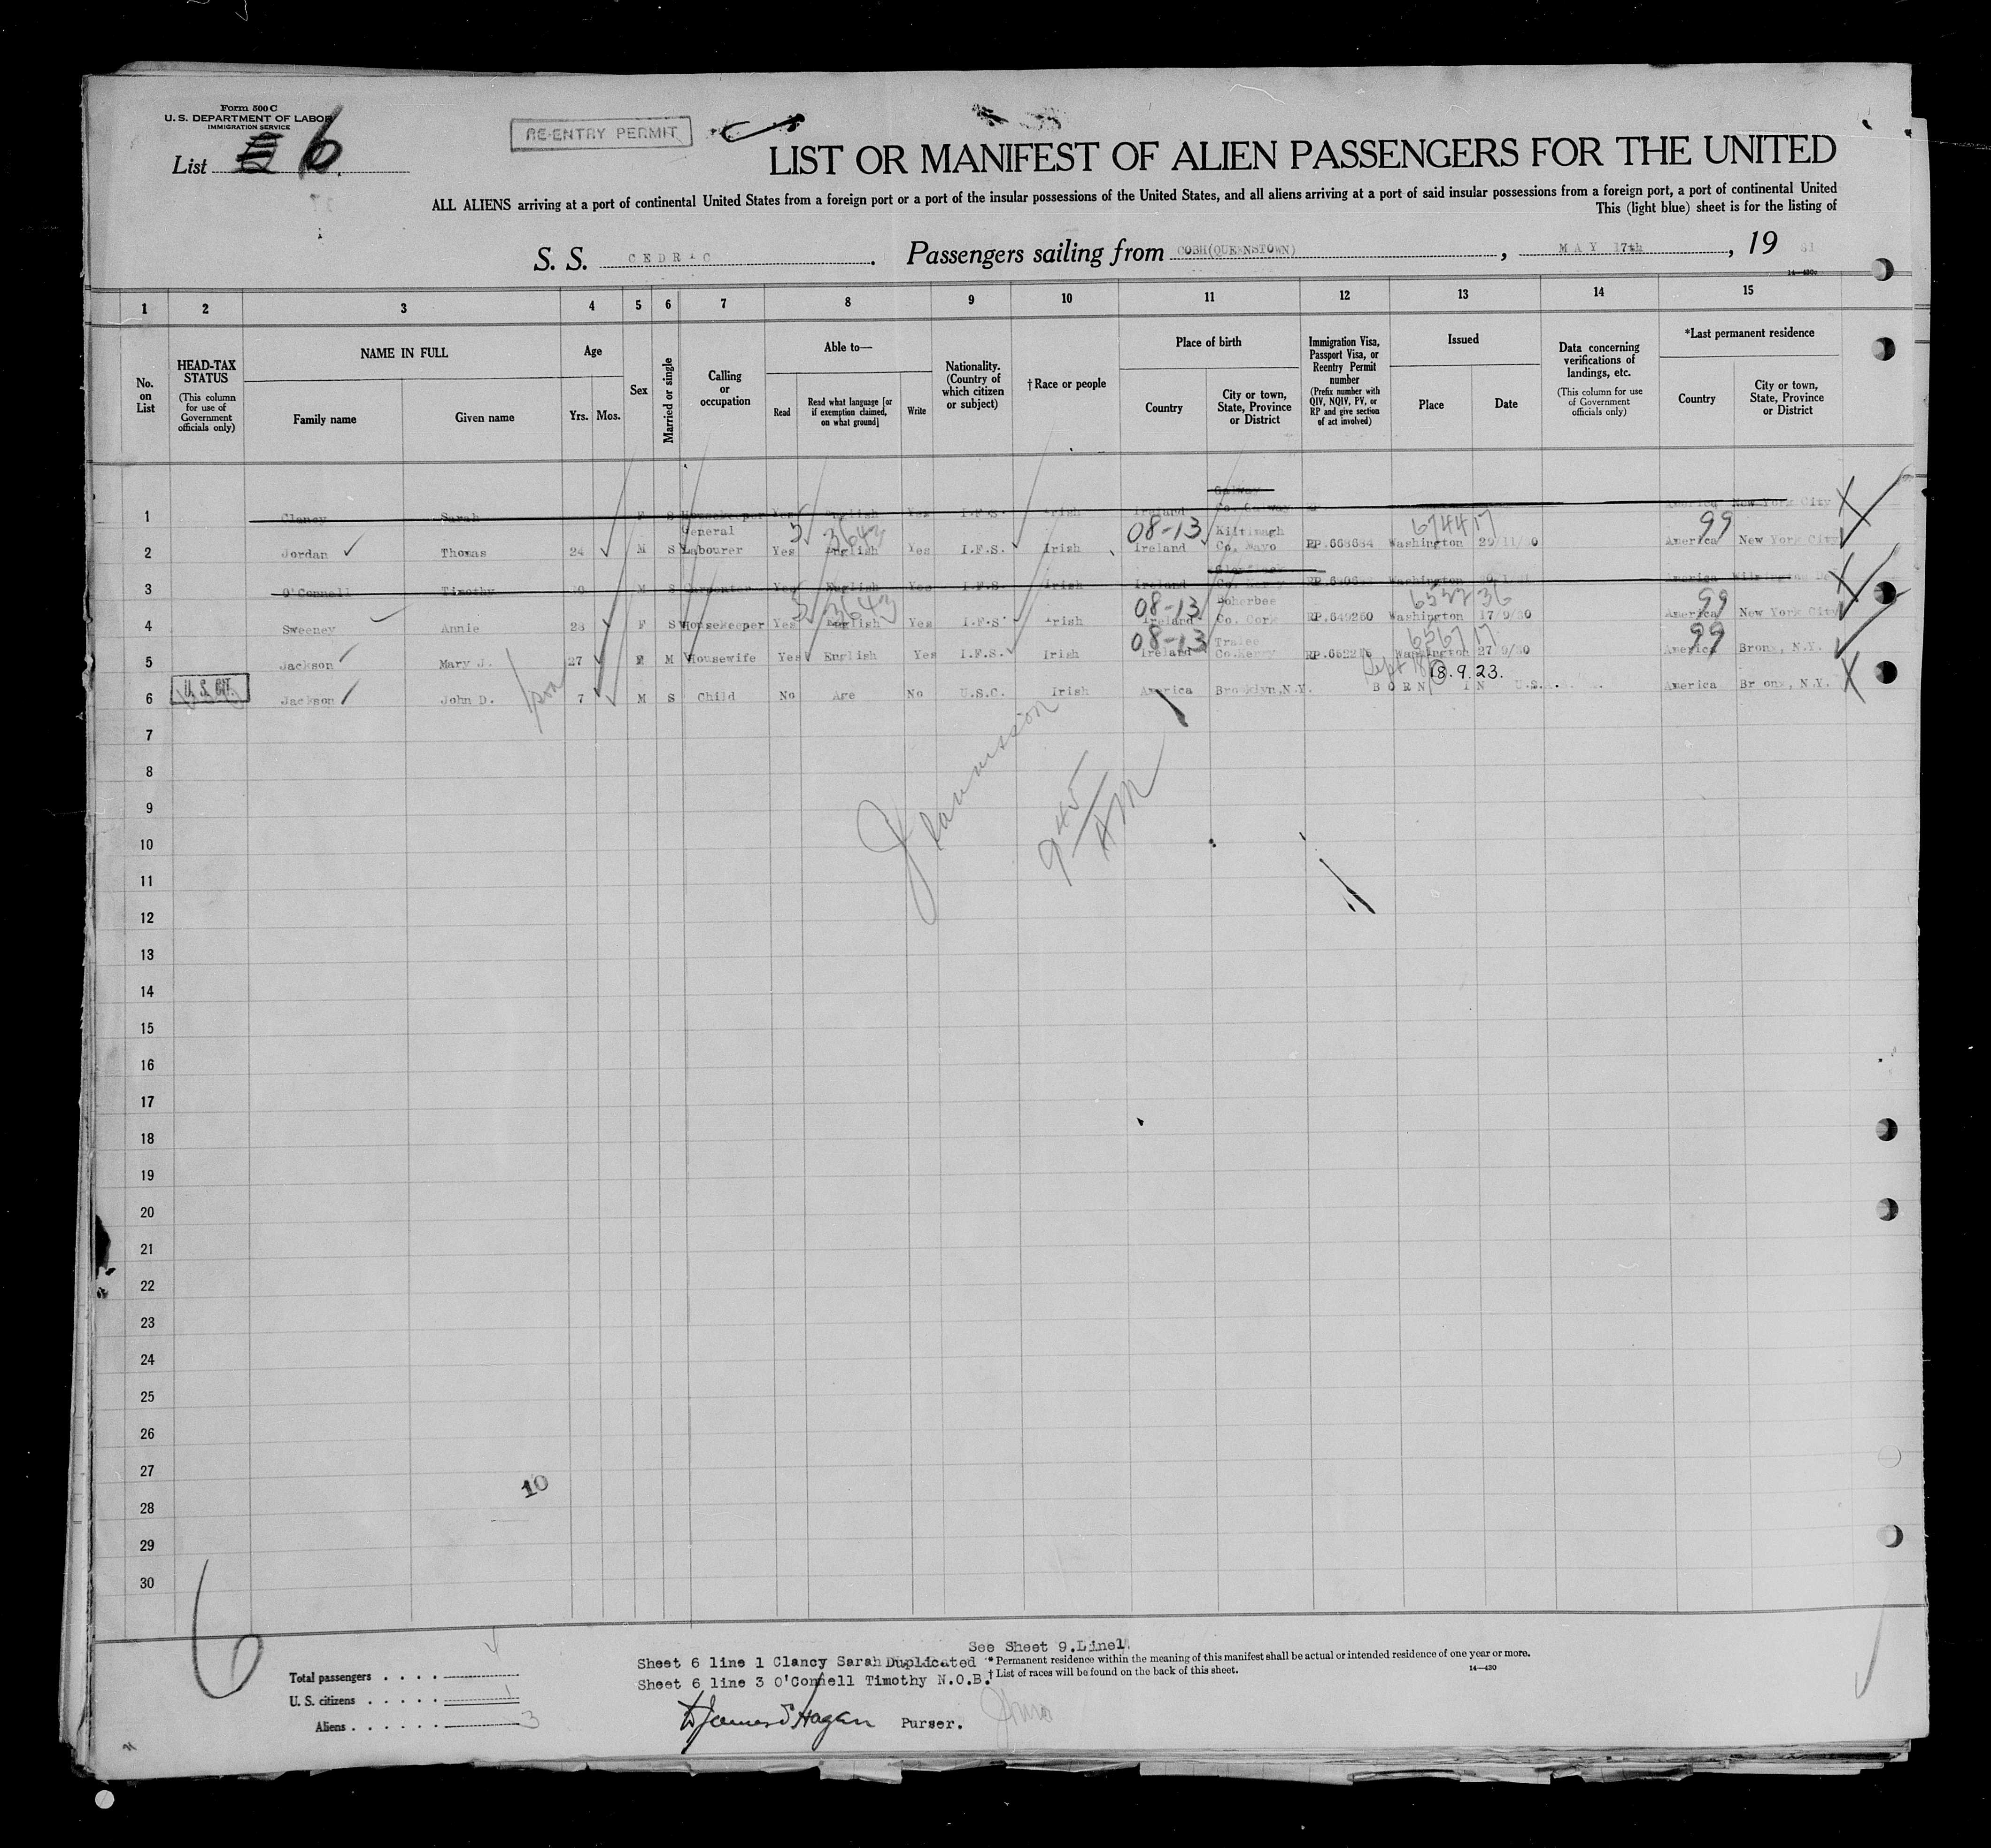 Form 500 C
U. S. DEPARTMENT OF LABOR
IMMIGRATION SERVICE
List 6
RE-ENTRY PERMIT
LIST OR MANIFEST OF ALIEN PASSENGERS FOR THE UNITED
ALL ALIENS arriving at a port of continental United States from a foreign port or a port of the insular possessions of the United States, and all aliens arriving at a port of said insular possessions from a foreign port, a port of continental United
This (light blue) sheet is for the listing of
S. S. CEDRIC. Passengers sailing from COBH(QUEENSTOWN), MAY 17th, 19 31
14—430c
1 2 3 4 5 6 7 8 9 10 11 12 13 14 15
No. on List
HEAD-TAX STATUS (This column for use of Government officials only)
NAME IN FULL Family name Given name
Age Yrs. Mos.
Sex
Married or single
Calling or occupation
Able to— Read Read what language [or if exemption claimed, on what ground] Write
Nationality. (Country of which citizen or subject)
†Race or people
Place of birth Country City or town, State, Province or District
Immigration Visa, Passport Visa, or Reentry Permit number (Prefix number with QIV, NQIV, PV, or RP and give section of act involved)
Issued Place Date
Data concerning verifications of landings, etc. (This column for use of Government officials only)
*Last permanent residence Country City or town, State, Province or District
1 Clancy Sarah F S Housekeeper Yes English Yes I.F.S. Irish Ireland Galway Co. Galway America New York City
5 3643 08-13 674417 99
2 Jordan Thomas 24 M S General Labourer Yes English Yes I.F.S. Irish Ireland Kiltimagh Co. Mayo RP.668684 Washington America New York City
3 O'Connell Timothy M S Carpenter Yes English Yes I.F.S. Irish Ireland Co. Kerry Washington America
5 3643 08-13 99
4 Sweeney Annie 28 F S Housekeeper Yes English Yes I.F.S. Irish Ireland Boherbee Co. Cork RP.649260 Washington 17/9/30 America New York City
08-13 99
5 Jackson Mary J. 27 M Housewife Yes English Yes I.F.S. Irish Ireland Tralee Co.Kerry Washington 27/9/30 America Bronx, N.Y.
Sept 18 18.9.23.
6 U. S. CIT. Jackson John D. son 7 M S Child No Age No U.S.C. Irish America Brooklyn,N.Y. BORN IN U.S.A. America Bronx, N.Y.
7
8
9
9 45 AM
10
11
12
13
14
15
16
17
18
19
20
21
22
23
24
25
26
27
10
28
29
30
6
See Sheet 9.Line1.
Total passengers . . . .
U. S. citizens . . . . . 1
Aliens . . . . . . 3
Sheet 6 line 1 Clancy Sarah Duplicated
Sheet 6 line 3 O'Connell Timothy N.O.B.
* Permanent residence within the meaning of this manifest shall be actual or intended residence of one year or more.
† List of races will be found on the back of this sheet.
14—430
Hagan Purser.